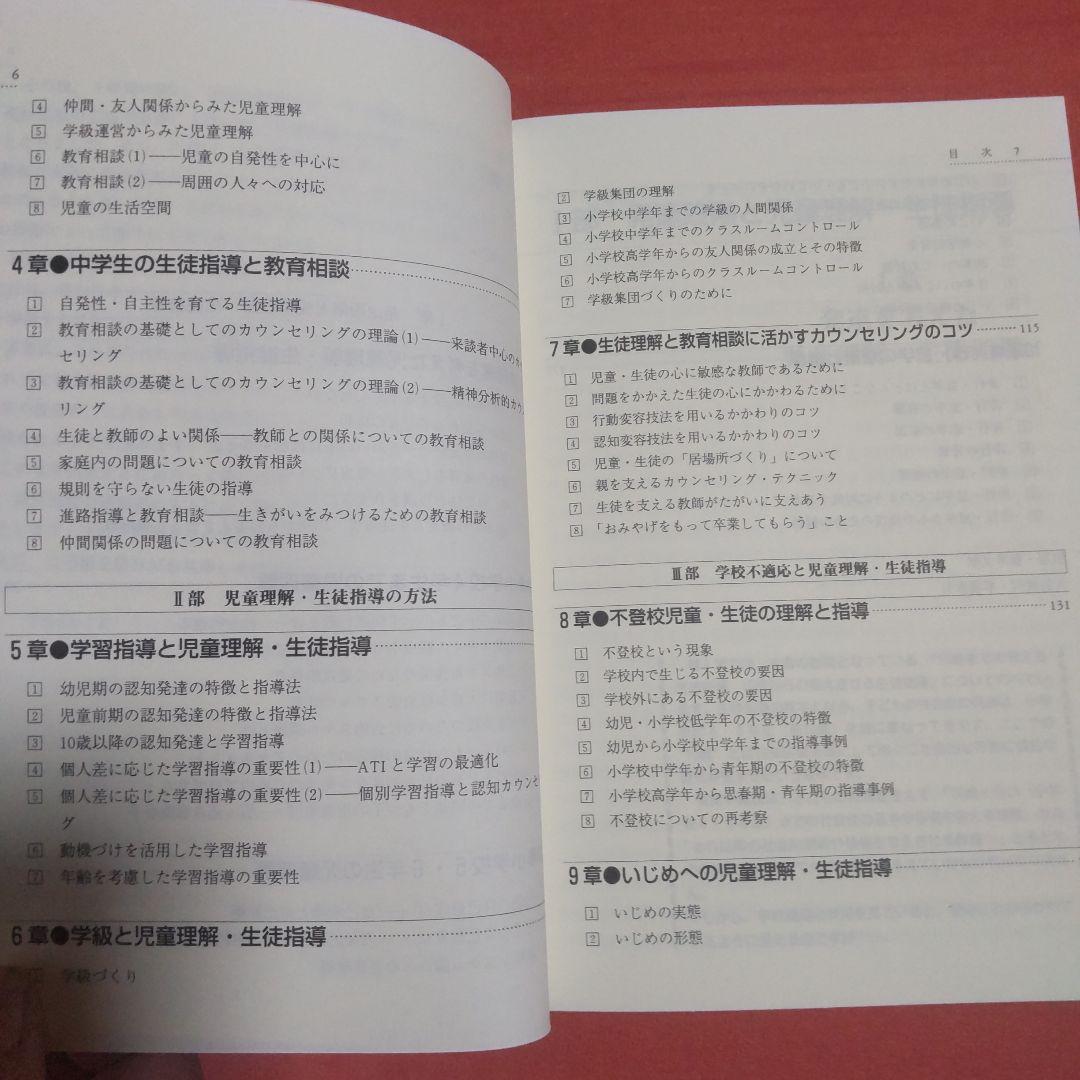 6
4 仲間・友人関係からみた児童理解
5 学級運営からみた児童理解
6 教育相談(1)——児童の自発性を中心に
7 教育相談(2)——周囲の人々への対応
8 児童の生活空間
4章●中学生の生徒指導と教育相談
1 自発性・自主性を育てる生徒指導
2 教育相談の基礎としてのカウンセリングの理論(1)——来談者中心のカ
セリング
3 教育相談の基礎としてのカウンセリングの理論(2)——精神分析的カウ
リング
4 生徒と教師のよい関係——教師との関係についての教育相談
5 家庭内の問題についての教育相談
6 規則を守らない生徒の指導
7 進路指導と教育相談——生きがいをみつけるための教育相談
8 仲間関係の問題についての教育相談
II部 児童理解・生徒指導の方法
5章●学習指導と児童理解・生徒指導
1 幼児期の認知発達の特徴と指導法
2 児童前期の認知発達の特徴と指導法
3 10歳以降の認知発達と学習指導
4 個人差に応じた学習指導の重要性(1)——ATIと学習の最適化
5 個人差に応じた学習指導の重要性(2)——個別学習指導と認知カウンセ
グ
6 動機づけを活用した学習指導
7 年齢を考慮した学習指導の重要性
6章●学級と児童理解・生徒指導
1 学級づくり
目次 7
2 学級集団の理解
3 小学校中学年までの学級の人間関係
4 小学校中学年までのクラスルームコントロール
5 小学校高学年からの友人関係の成立とその特徴
6 小学校高学年からのクラスルームコントロール
7 学級集団づくりのために
7章●生徒理解と教育相談に活かすカウンセリングのコツ 115
1 児童・生徒の心に敏感な教師であるために
2 問題をかかえた生徒の心にかかわるために
3 行動変容技法を用いるかかわりのコツ
4 認知変容技法を用いるかかわりのコツ
5 児童・生徒の「居場所づくり」について
6 親を支えるカウンセリング・テクニック
7 生徒を支える教師がたがいに支えあう
8 「おみやげをもって卒業してもらう」こと
III部 学校不適応と児童理解・生徒指導
8章●不登校児童・生徒の理解と指導 131
1 不登校という現象
2 学校内で生じる不登校の要因
3 学校外にある不登校の要因
4 幼児・小学校低学年の不登校の特徴
5 幼児から小学校中学年までの指導事例
6 小学校中学年から青年期の不登校の特徴
7 小学校高学年から思春期・青年期の指導事例
8 不登校についての再考察
9章●いじめへの児童理解・生徒指導
1 いじめの実態
2 いじめの形態